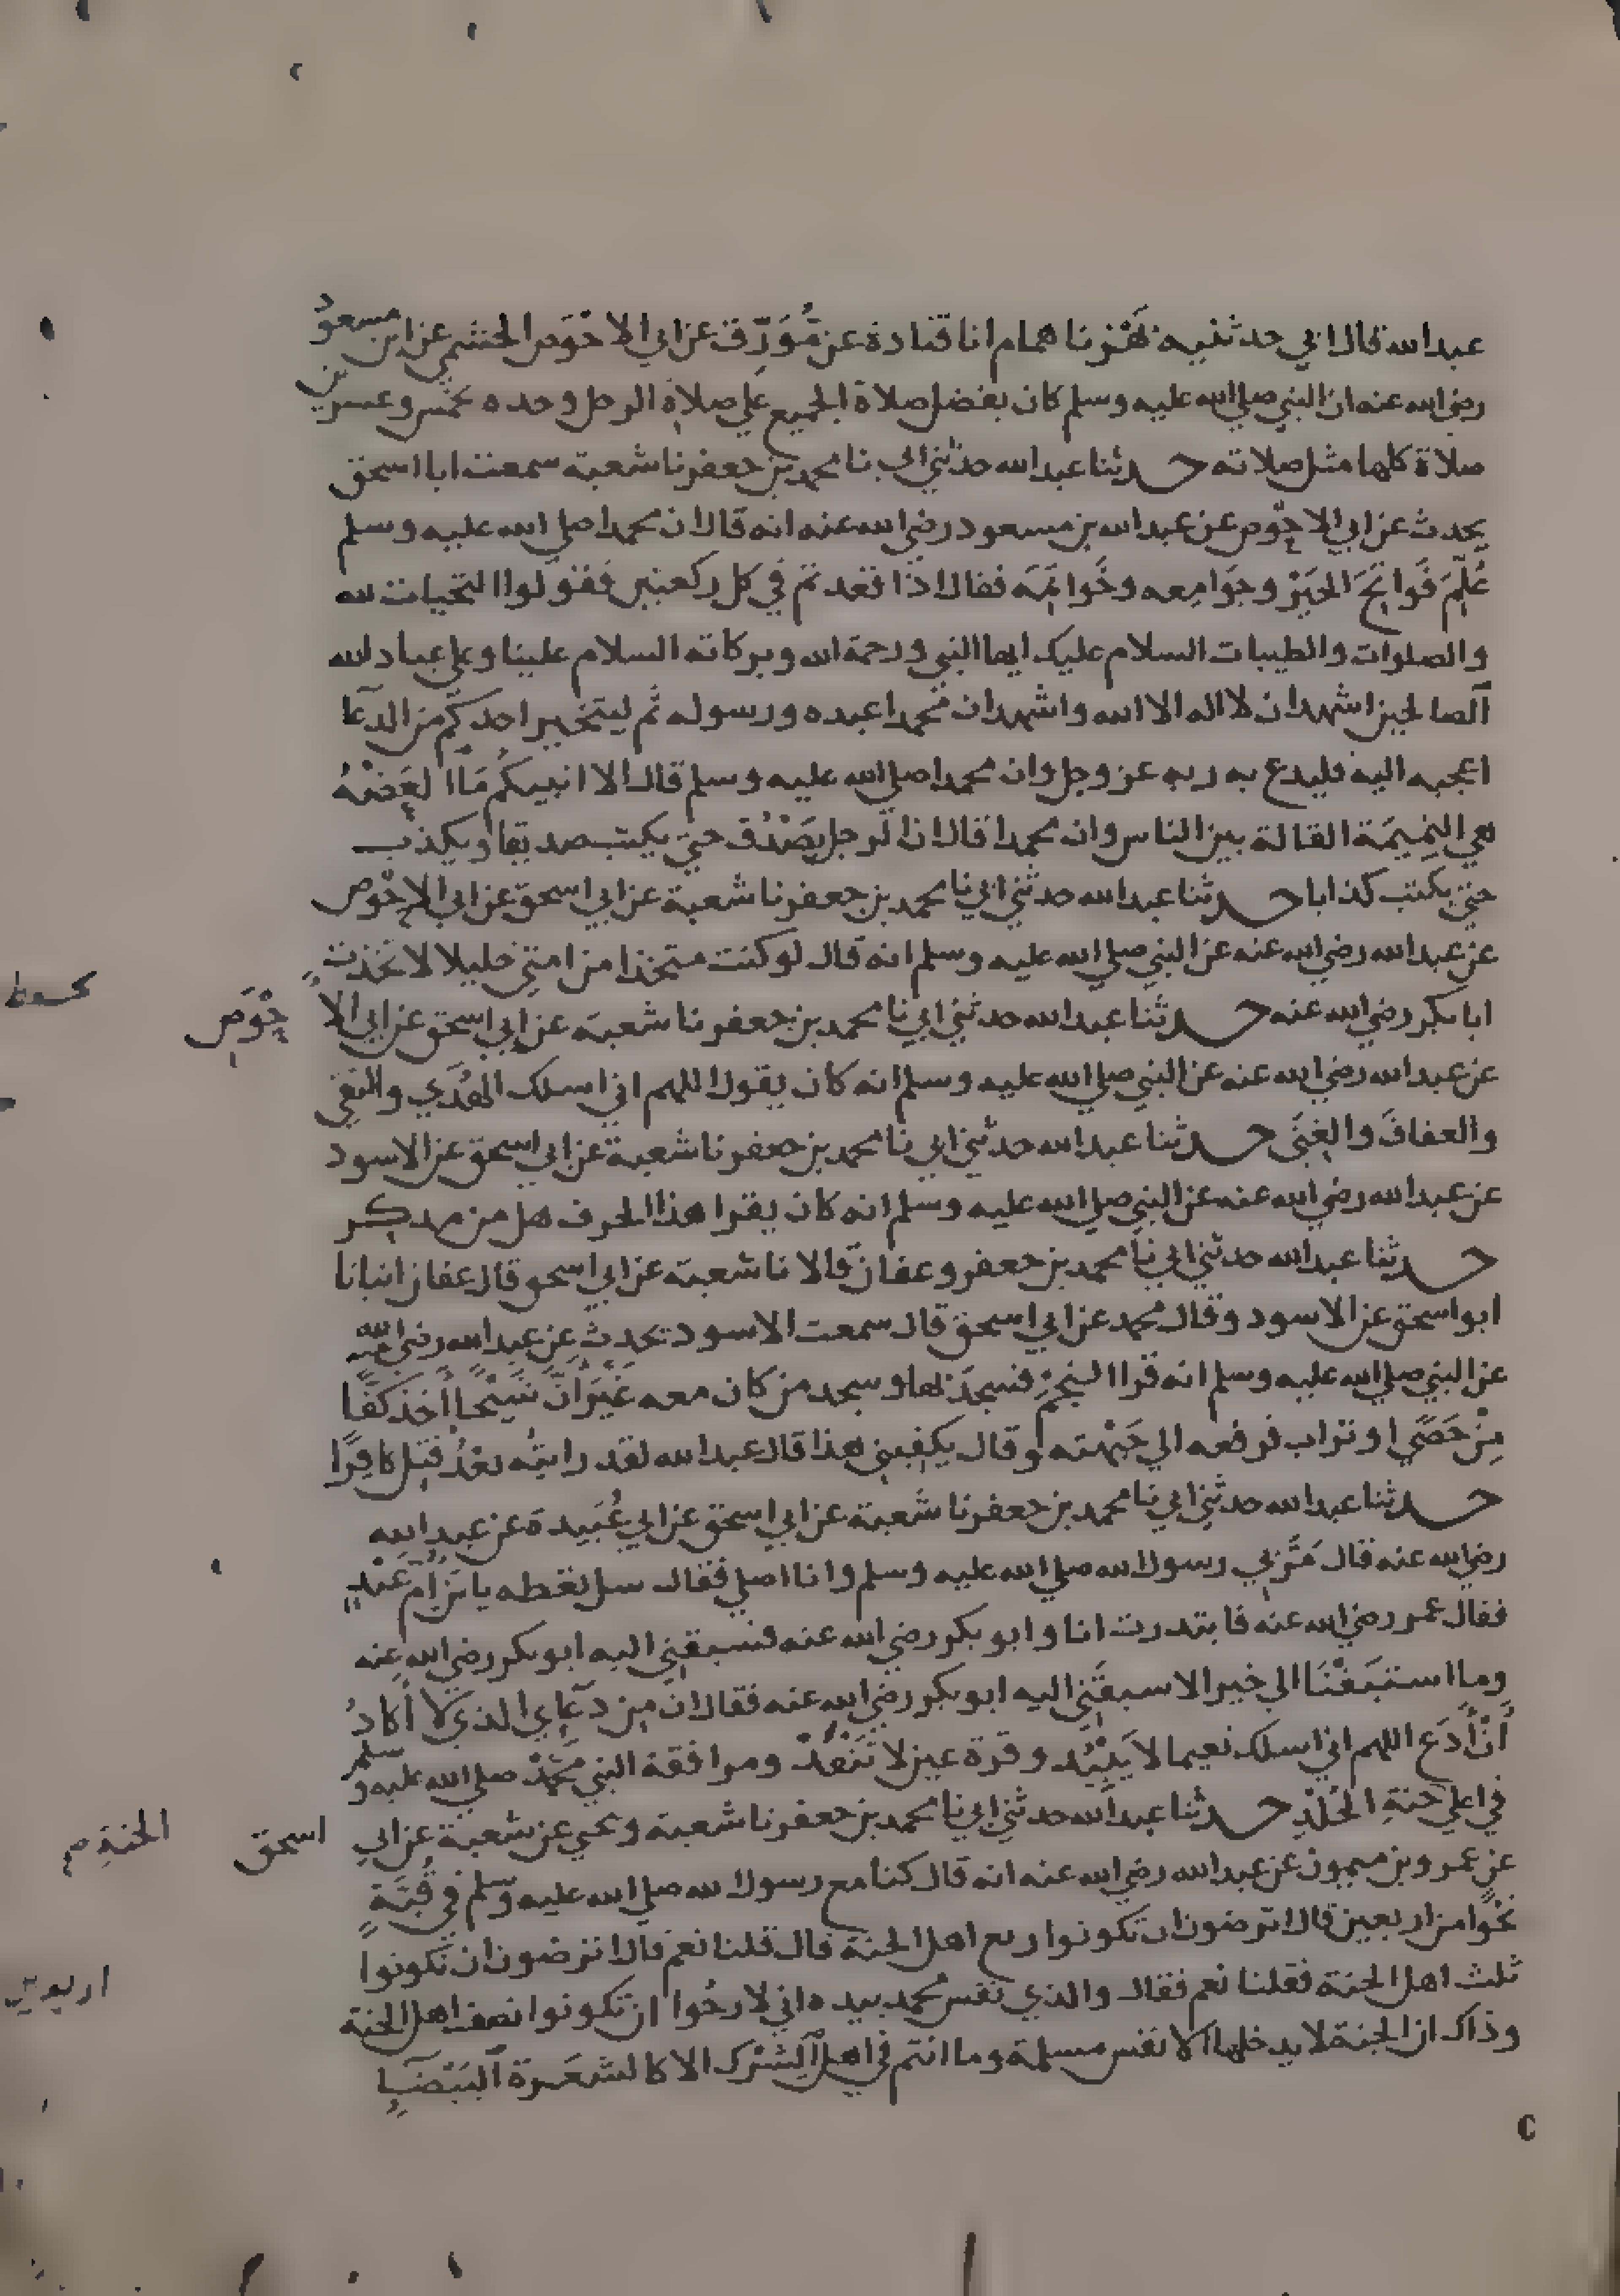 عبد الله قال ابي حدثنيه بهز نا همام انا قتادة عن مُوَرِّق عن ابي الاحْوَص الجشمي عن ابن مسعود
رضي الله عنه ان النبي صلى الله عليه وسلم كان يفضل صلاة الجميع على صلاة الرجل وحده بخمس وعشرين
صلاة كلها مثل صلاته حدثنا عبد الله حدثني ابي نا محمد بن جعفر نا شعبة سمعت ابا اسحق
يحدث عن ابي الاحوص عن عبد الله بن مسعود رضي الله عنه انه قال ان محمدا صلى الله عليه وسلم
عُلِّمَ فَوَاتِحَ الخَيْرِ وجَوَامِعه وخَوَاتِمَه فقال اذا قعدتم في كل ركعتين فقولوا التحيات لله
والصلوات والطيبات السلام عليك ايها النبي ورحمة الله وبركاته السلام علينا وعلى عباد الله
الصالحين اشهد ان لا اله الا الله واشهد ان محمدا عبده ورسوله ثم ليتخير احدكم من الدعا
اعجبه اليه فليدع به ربه عز وجل وان محمدا صلى الله عليه وسلم قال الا انبيكم مَا العَضْهُ
هي النمِيمَة القالة بين الناس وان محمدا قال ان الرجل يَصْدُق حتى يكتب صديقا ويكذب
حتى يكتب كذابا حدثنا عبد الله حدثني ابي نا محمد بن جعفر نا شعبة عن ابي اسحق عن ابي الاحْوص
عن عبد الله رضي الله عنه عن النبي صلى الله عليه وسلم انه قال لو كنت متخذا من امتي خليلا لاتخذت
ابا بكر رضي الله عنه حدثنا عبد الله حدثني ابي نا محمد بن جعفر نا شعبة عن ابي اسحق عن ابي الا حْوَص
عن عبد الله رضي الله عنه عن النبي صلى الله عليه وسلم انه كان يقول اللهم اني اسلك الهُدَي والتقي
والعفافَ والغِنَى حدثنا عبد الله حدثني ابي نا محمد بن جعفر نا شعبة عن ابي اسحق عن الاسود
عن عبد الله رضي الله عنه عن النبي صلى الله عليه وسلم انه كان يقرا هذا الحرف هل من مدكر
حدثنا عبد الله حدثني ابي نا محمد بن جعفر وعفان قالا نا شعبة عن ابي اسحق قال عفان انبانا
ابو اسحق عن الاسود وقال محمد عن ابي اسحق قال سمعت الاسود يحدث عن عبد الله رضي الله عنه
عن النبي صلى الله عليه وسلم انه قرا النجمَ فسجد بها وسجد من كان معه غَيْرَ انَّ شَيْخًا اخذ كَفًّا
مِنْ حَصًى او تراب فرفعه الي جَبْهته وقال يكفيني هذا قال عبد الله لقد رايته بعْدُ قتل كافِرًا
حدثنا عبد الله حدثني ابي نا محمد بن جعفر نا شعبة عن ابي اسحق عن ابي عُبَيدة عن عبد الله
رضي الله عنه قال مَرَّ بي رسول الله صلى الله عليه وسلم وانا اصلي فقال سل تعطه يا بن ام عَبْدٍ
فقال عمر رضي الله عنه فابتدرت انا وابو بكر رضي الله عنه فسبقني اليه ابو بكر رضي الله عنه
وما استبَقْنَا الى خير الا سبقَني اليه ابو بكر رضي الله عنه فقال ان من دعاي الذي لا أكادُ
أنْ أدَع اللهم اني اسلك نعيما لا يَبِيْد وقرة عين لا تَنْفَدْ ومرافقة النبي محمد صلى الله عليه وسلم
في اعلي جنةِ الخُلْدِ حدثنا عبد الله حدثني ابي نا محمد بن جعفر نا شعبة ويحيي عن شعبة عن ابي اسحق
عن عمرو بن ميمون عن عبد الله رضي الله عنه انه قال كنا مع رسول الله صلى الله عليه وسلم في قُبَّةٍ
نحْوًا من اربعين قال اترضون ان تكونوا ربع اهل الجنة قال قلنا نعم قال اترضون ان تكونوا
ثلث اهل الجنة فقلنا نعم فقال والذي نفس محمد بيده اني لارجُوا ان تكونوا نصف اهل الجنة
وذاك ان الجنة لا يدخلها الا نفس مسلمة وما انتم في اهل الشِّرْك الا كالشعَرة البَيْضَآءِ
الجنة م